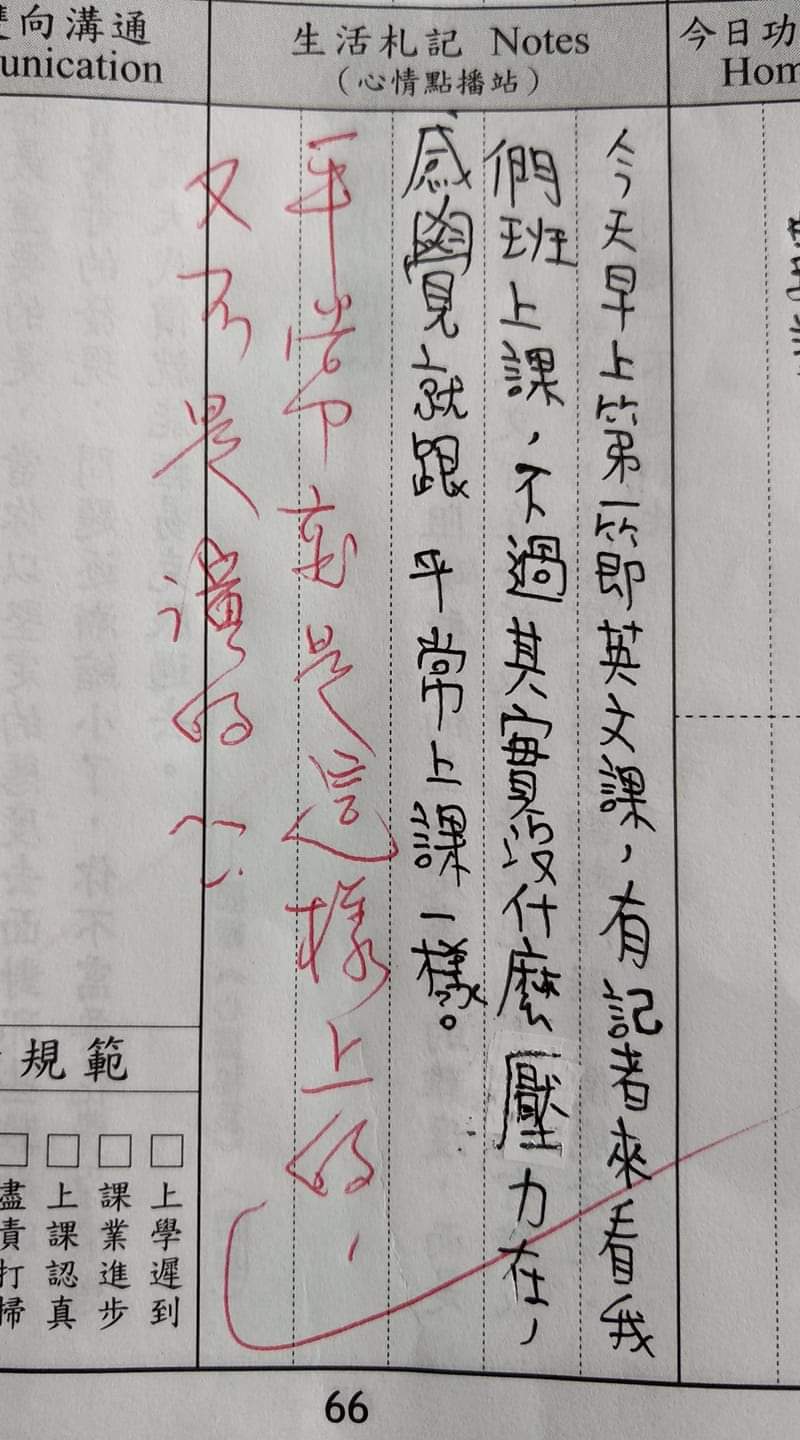 雙向溝通
unication
生活札記 Notes
(心情點播站)
今日功
Hom
今天早上第一節英文課，有記者來看我
們班上課，不過其實沒什麼壓力在，
感覺就跟平常上課一樣。
平常就是這樣上的，
又不是演的
規範
□上學遲到
□課業進步
□上課認真
□盡責打掃
66